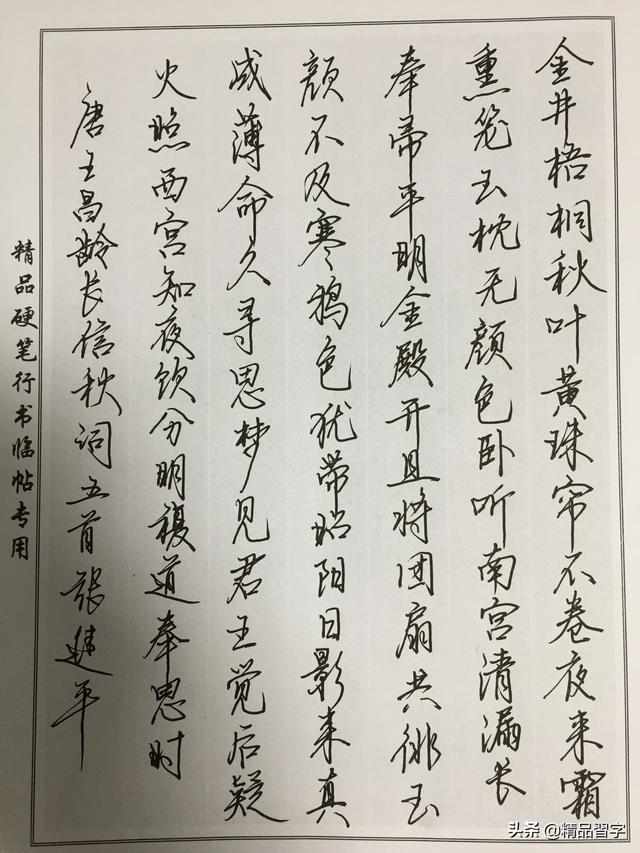 金井梧桐秋叶黄珠帘不卷夜来霜
熏笼玉枕无颜色卧听南宫清漏长
奉帚平明金殿开且将团扇共徘玉
颜不及寒鸦色犹带昭阳日影来真
成薄命久寻思梦见君王觉后疑
火照西宫知夜饮分明複道奉恩时
唐王昌龄长信秋词五首张建平
精品硬笔行书临帖专用
头条 @精品習字